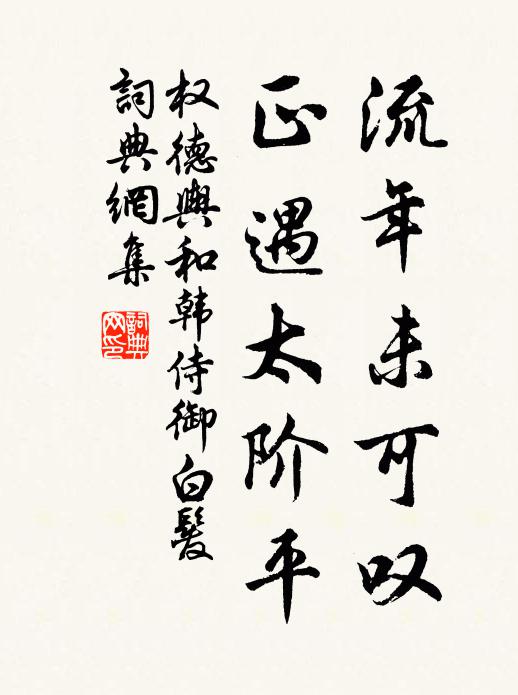 流年未可叹
正遇太阶平
权德舆和韩侍御白髮
詞典網集
詞典網印